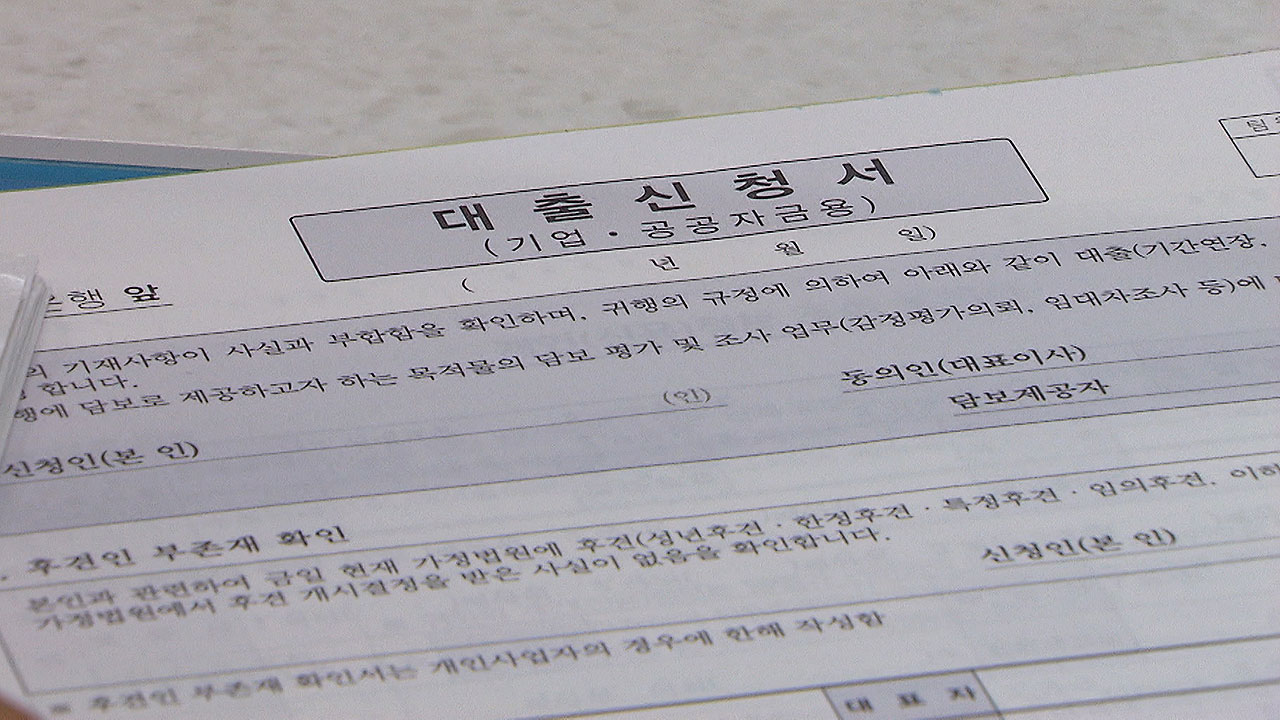 대 출 신 청 서
(기업 · 공공자금용)
( 년 월 일)
은행 앞
의 기재사항이 사실과 부합함을 확인하며, 귀행의 규정에 의하여 아래와 같이 대출(기간연장,
합니다.
행에 담보로 제공하고자 하는 목적물의 담보 평가 및 조사 업무(감정평가의뢰, 임대차조사 등)에
신청인(본 인) (인) 동의인(대표이사)
담보제공자
. 후견인 부존재 확인
본인과 관련하여 금일 현재 가정법원에 후견(성년후견 · 한정후견 · 특정후견 · 임의후견, 이하
가정법원에서 후견 개시결정을 받은 사실이 없음을 확인합니다.
신청인(본 인)
※ 후견인 부존재 확인서는 개인사업자의 경우에 한해 작성함
대 표 자